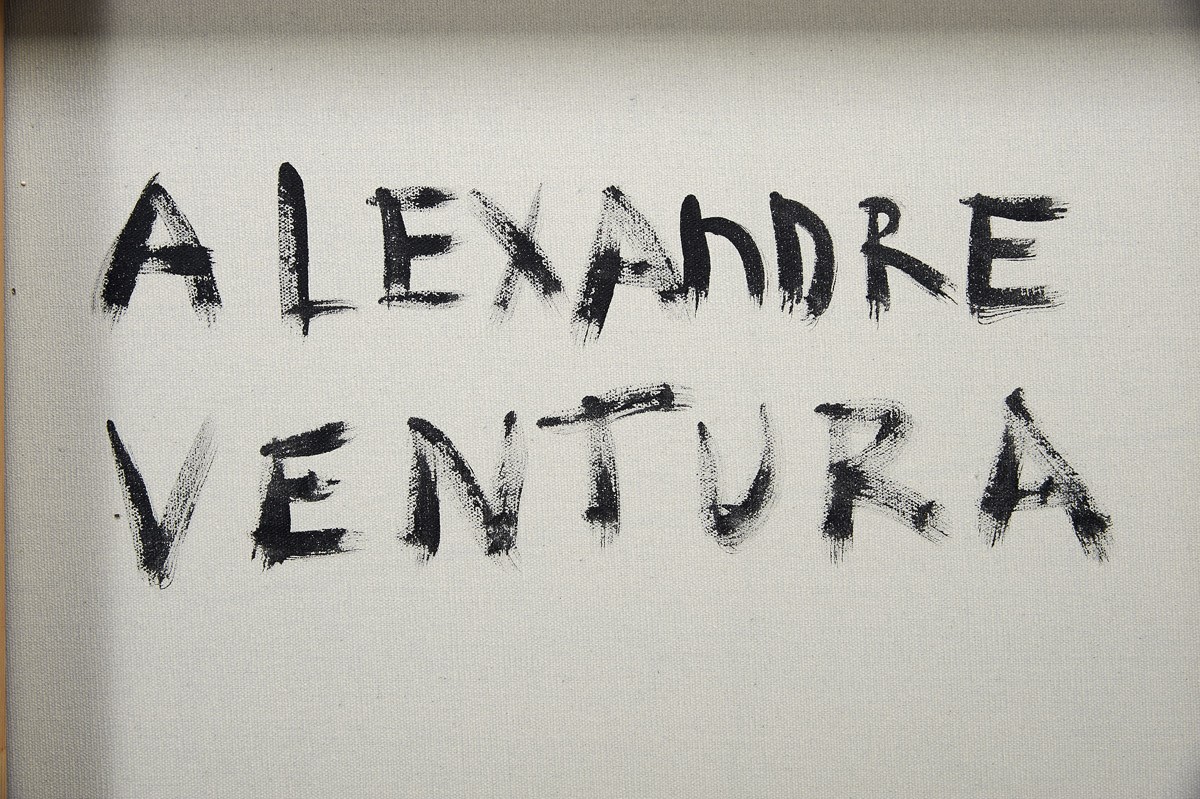 ALEXAnDRE
VENTURA